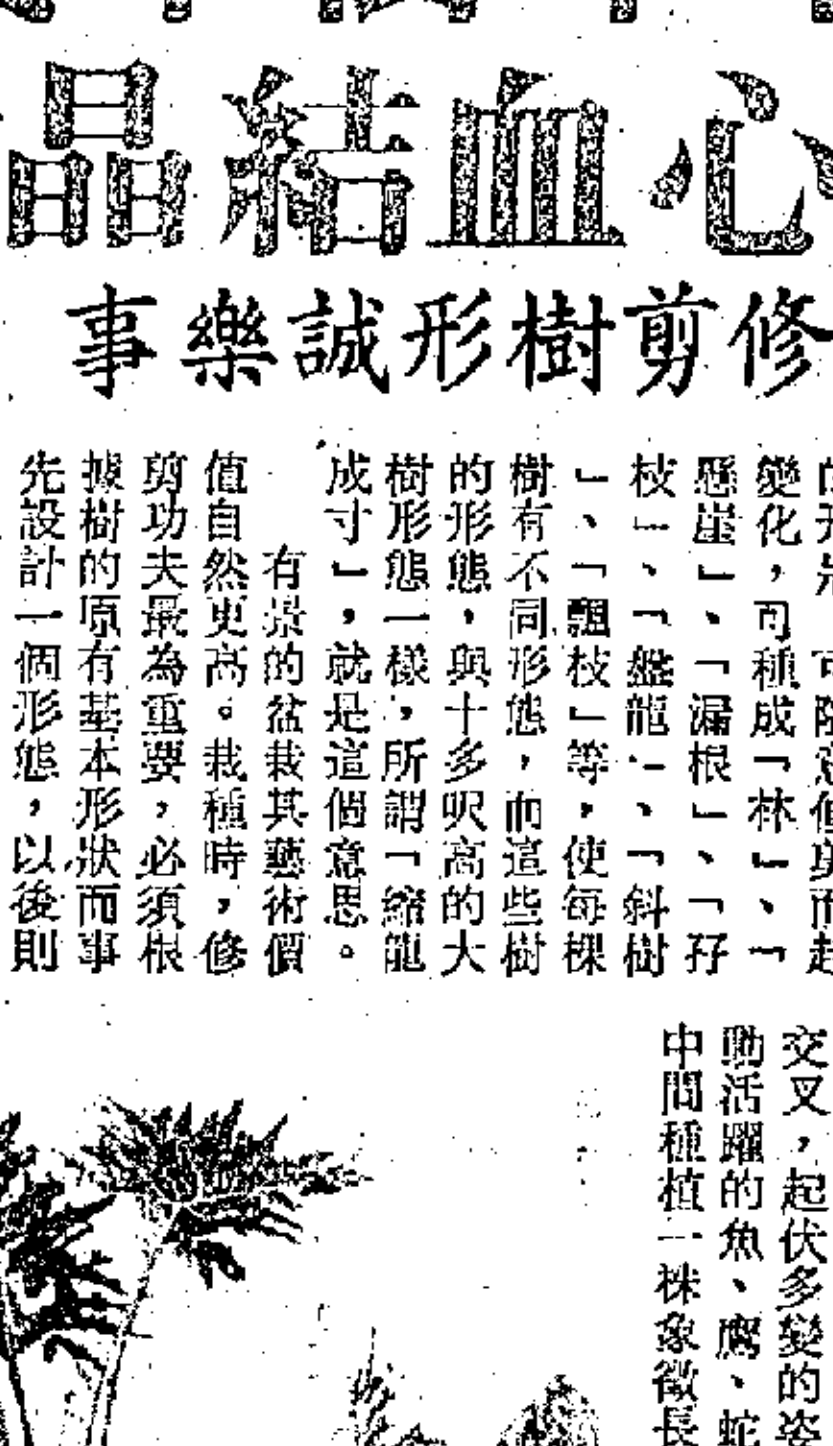 心血結晶
修剪樹形誠樂事
變化，可種成「林」、「
懸崖」、「漏根」、「孖
枝」、「盤龍」、「斜樹
」、「飄枝」等，使每棵
樹有不同形態，而這些樹
的形態，與十多呎高的大
樹形態一樣，所謂「縮龍
成寸」，就是這個意思。
有景的盆栽其藝術價
值自然更高。栽種時，修
剪功夫最為重要，必須根
據樹的原有基本形狀而事
先設計一個形態，以後則
交叉，起伏多變的姿
動活躍的魚、鷹、蛇
中間種植一株象徵長